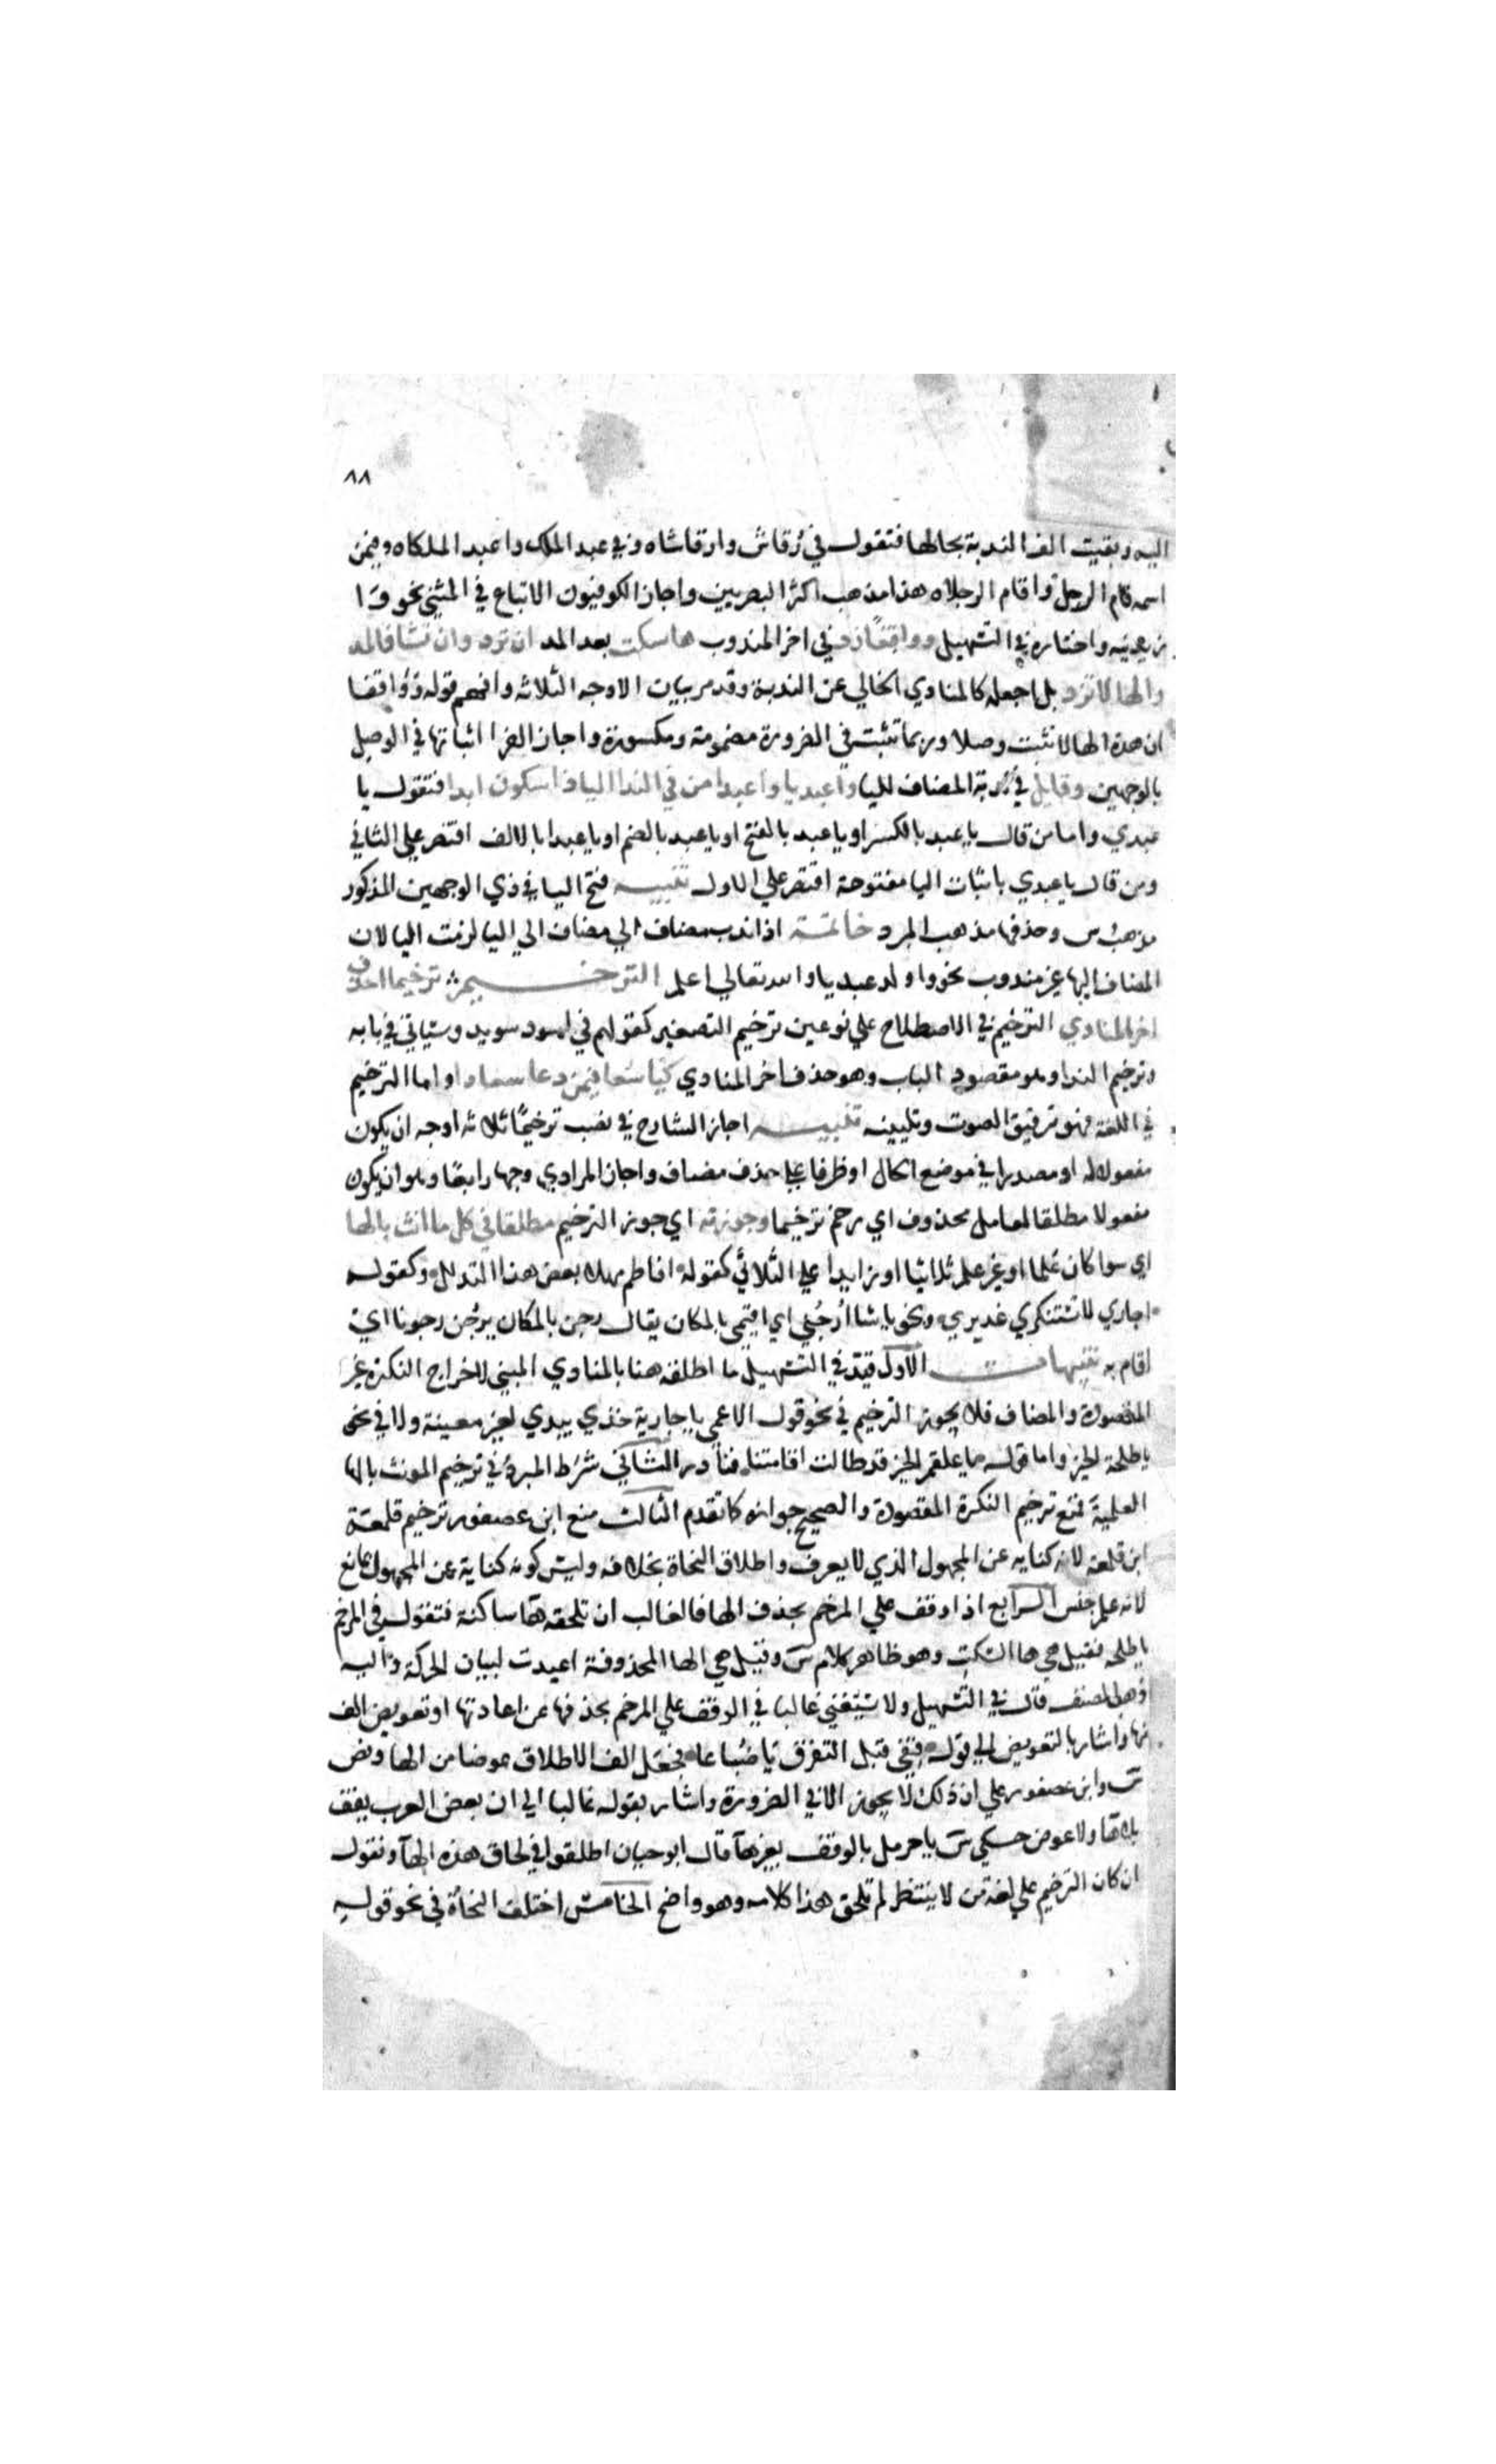 ٨٨
اليه وبقيت الف الندبة بحالها فتقول في رقاش وارقاشاه وفي عبد الملك واعبد الملكاه وفيمن
اسمه قام الرجل واقام الرجلاه هذا مذهب اكثر البصريين واجاز الكوفيون الاتباع في المثنى نحو وا
زيدنيه واختاره في التسهيل وواقفا زد في اخر المندوب ها سكت بعد المد ان ترد وان تشا فالمد
والها لا تزد بل اجعله كالمنادي الخالي عن الندبة وقد مر بيان الاوجه الثلاثه وافهم قوله وواقفا
ان هذه الها لا تثبت وصلا وربما تثبت في الضرورة مضمومة ومكسورة واجاز الفرا اثباتها في الوصل
بالوجهين وقايل في ندبة المضاف لليا واعبديا واعبدا من في الندا اليا ذا سكون ابدا فتقول يا
عبدي واما من قال يا عبد بالكسر او يا عبد بالفتح او يا عبد بالضم او يا عبدا بالالف اقتصر علي الثاني
ومن قال يا عبدي باثبات اليا مفتوحة اقتصر علي الاول تنبيه فتح اليا في ذي الوجهين المذكور
مذهب س وحذفها مذهب المبرد خاتمة اذا ندب مضاف الي مضاف الي اليا لزمت اليا لان
المضاف اليها غير مندوب نحو وا ولد عبديا والله تعالي اعلم الترخيم ترخيما احذف
اخر المنادي الترخيم في الاصطلاح علي نوعين ترخيم التصغير كقولهم في اسود سويد وسياتي في بابه
وترخيم الندا وهو مقصود الباب وهو حذف اخر المنادي كيا سعا فيمن دعا سعادا واما الترخيم
في اللغة فهو ترقيق الصوت وتليينه تنبيه اجاز الشارح في نصب ترخيما ثلاثه اوجه ان يكون
مفعولا له او مصدرا في موضع الحال او ظرفا علي حذف مضاف واجاز المرادي وجها رابعا وهو ان يكون
مفعولا مطلقا لعامل محذوف اي رخم ترخيما وجوزنه اي جوز الترخيم مطلقا في كل ما انث بالها
اي سوا كان علما او غير علم ثلاثيا او زايدا علي الثلاثي كقوله افاطم مهلا بعض هذا التدلل وكقوله
اجاري لا تستنكري عذيري ونحو يا شا ارجني اي اقيمي بالمكان يقال رجن بالمكان يرجن رجونا اي
اقام به تنبيهات الاول قيد في التسهيل ما اطلقه هنا بالمنادي المبني لاخراج النكرة غير
المقصودة والمضاف فلا يجوز الترخيم في نحو قول الاعمي يا جارية خذي بيدي لغير معينة ولا في نحو
يا طلحة الخير واما قوله يا علقم الخير قد طالت اقامتنا فنادر الثاني شرط المبرد في ترخيم المونث بالها
العلمية فمنع ترخيم النكرة المقصودة والصحيح جوازه كما تقدم الثالث منع ابن عصفور ترخيم قلمعة
ابن قلعه لانه كنايه عن المجهول الذي لا يعرف واطلاق النحاة بخلافه وليس كونه كناية عن المجهول بمانع
لانه علم جنس الرابع اذا وقف علي المرخم بحذف الها فالغالب ان تلحقه ها ساكنة فتقول في المرخم
يا طلحه فقيل هي ها السكت وهو ظاهر كلام س وقيل هي الها المحذوفة اعيدت لبيان الحركة واليه
ذهب المصنف قال في التسهيل ولا يستغني غالبا في الوقف علي المرخم بحذفها عن اعادتها او تعويض الف
منها واشار بالتعويض الي قوله قفي قبل التفرق يا ضباعا فجعل الف الاطلاق عوضا من الها ونص
س وابن عصفور علي ان ذلك لا يجوز الا في الضرورة واشار بقوله غالبا الي ان بعض العرب يقف
بلا ها ولا عوض حكي س يا حرمل بالوقف بغير ها قال ابو حيان اطلقوا في لحاق هذه الها ونقول
ان كان الترخيم علي لغة من لا ينتظر لم تلحق هذا كلامه وهو واضح الخامس اختلف النحاة في نحو قوله